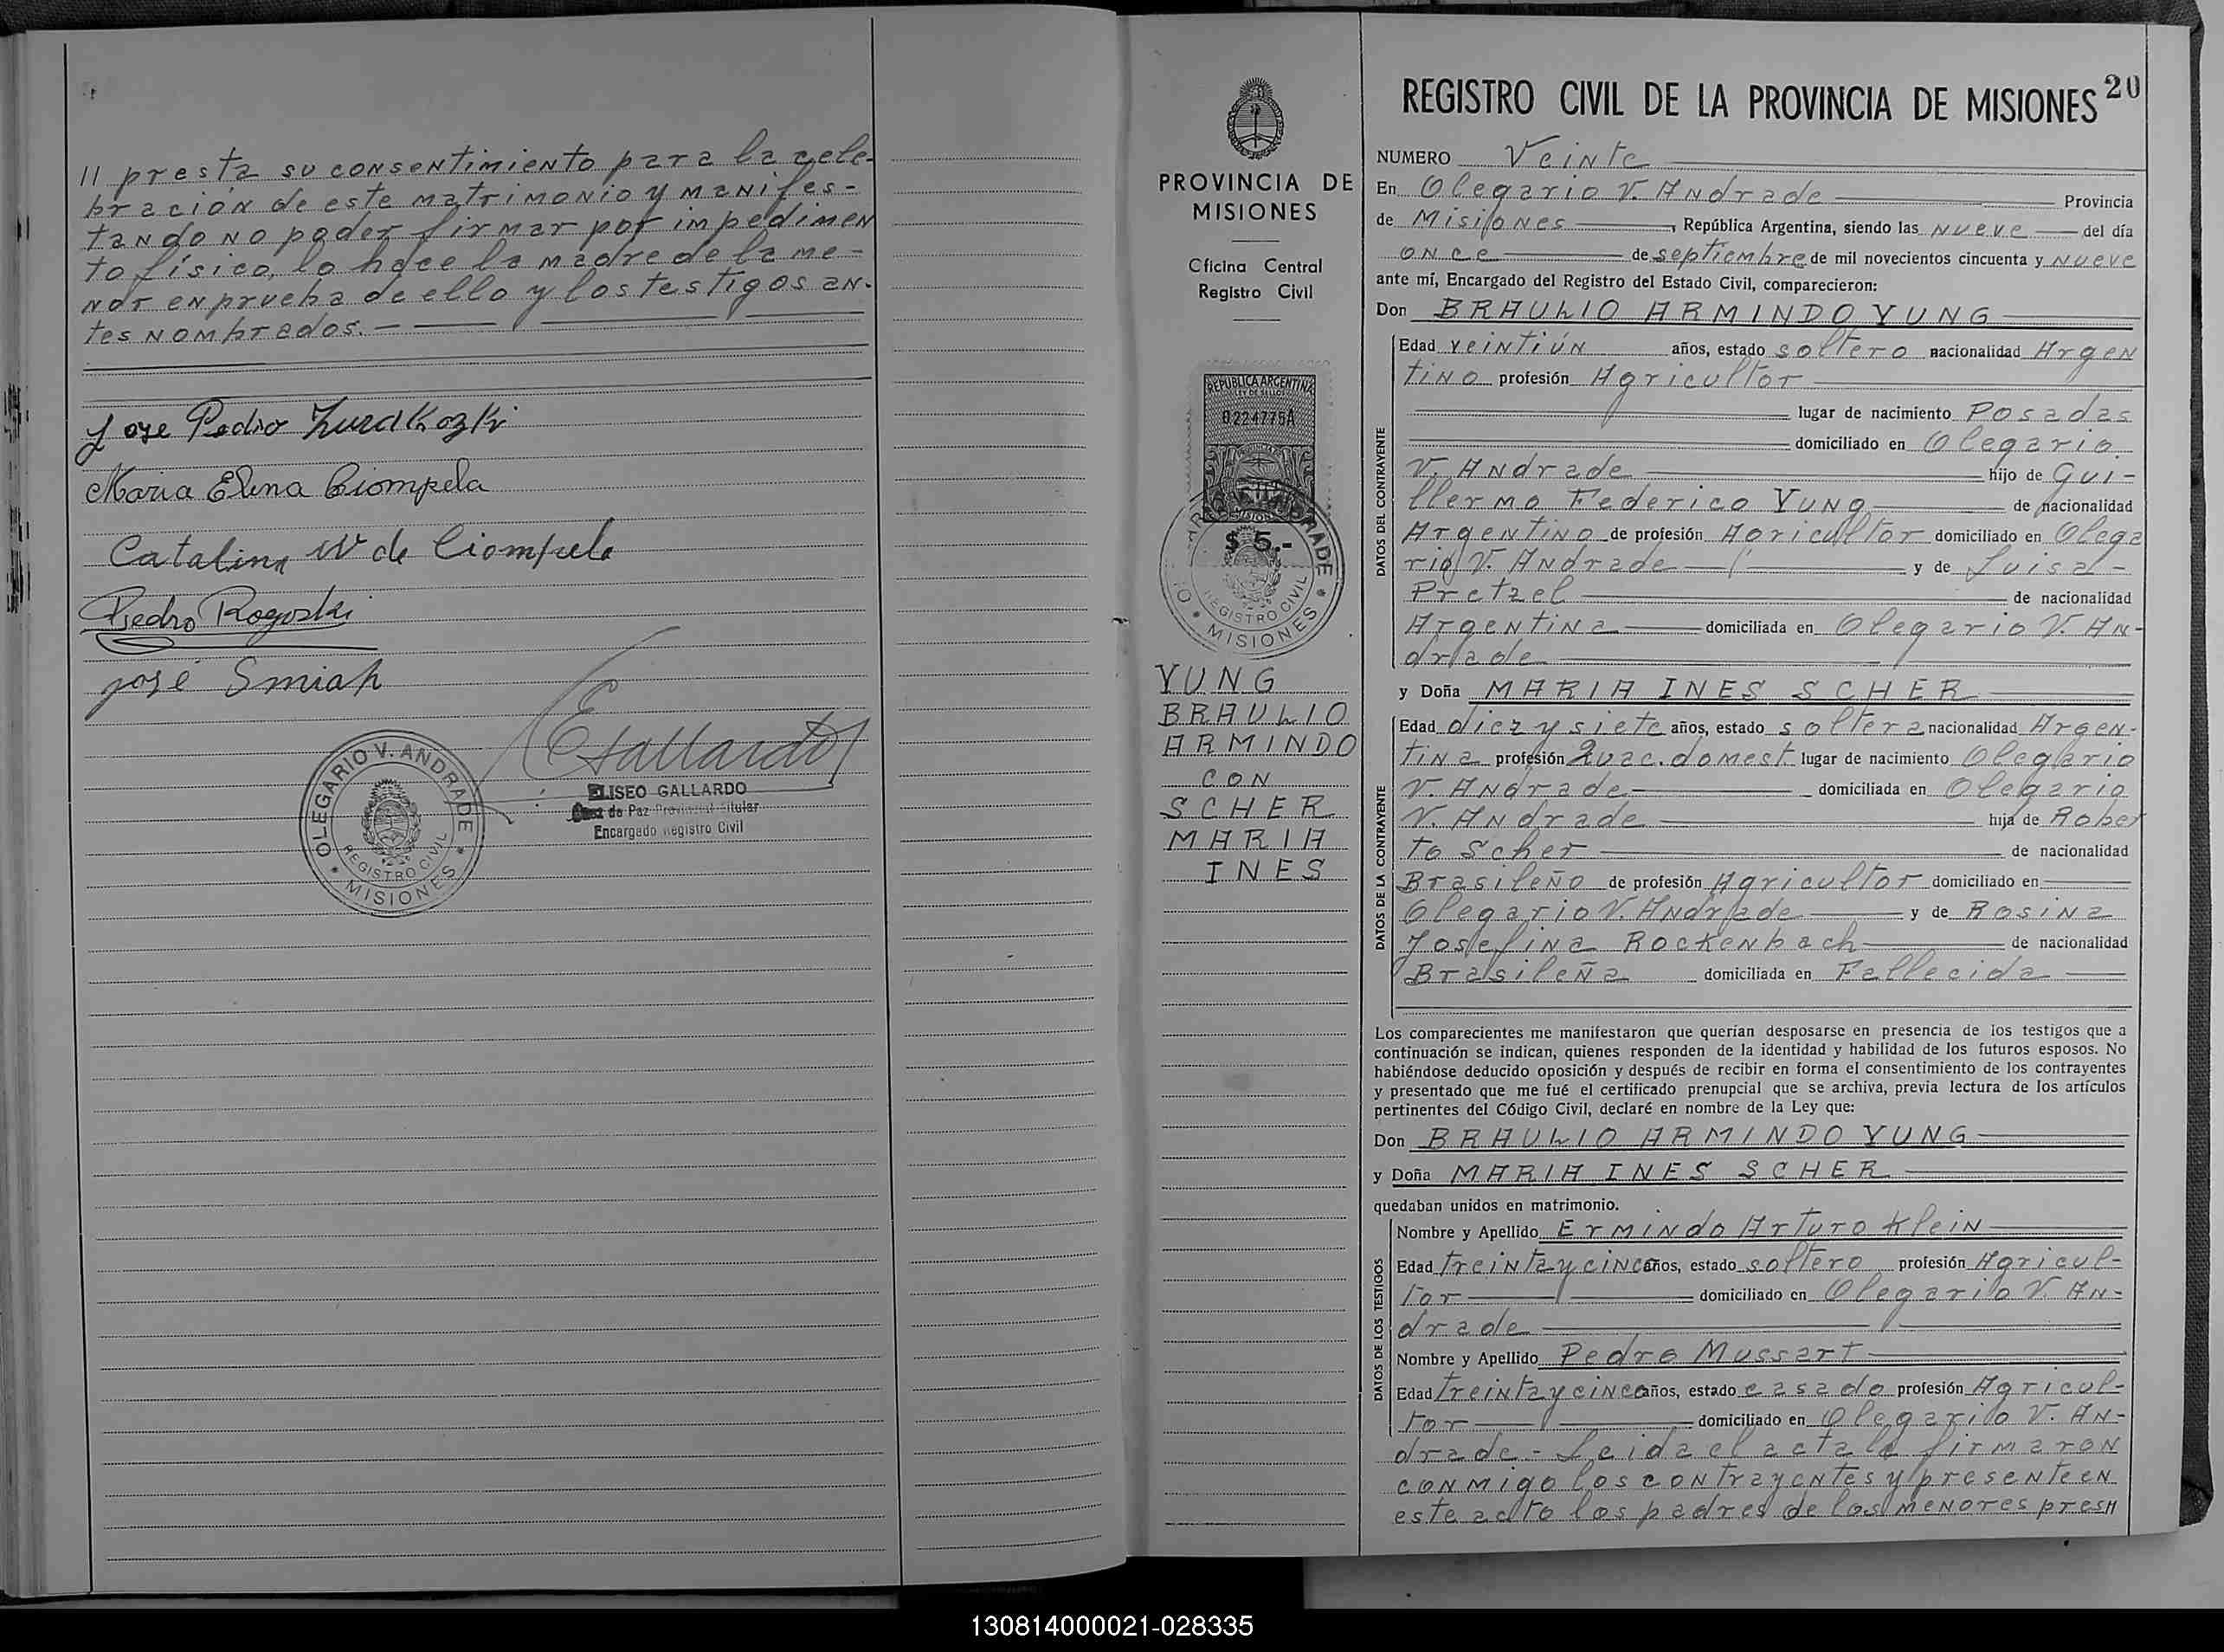 // presta su consentimiento para la cele-
bración de este matrimonio y manifes-
tando no poder firmar por impedimen
to físico lo hace la madre de la me-
nor en prueba de ello y los testigos an-
tes nombrados. —
Jose Pedro Zurakozki
Maria Elena Ciompela
Catalina W de Ciompela
Pedro Rogozki
José Smiah
EGallardo
OLEGARIO V. ANDRADE
REGISTRO CIVIL
* MISIONES *
ELISEO GALLARDO
Juez de Paz Provincial Titular
Encargado Registro Civil
PROVINCIA DE
MISIONES
Oficina Central
Registro Civil
REPUBLICA ARGENTINA
LEY DE SELLOS
0224775A
$ 5.-
REGISTRO CIVIL
* MISIONES *
YUNG
BRAULIO
ARMINDO
CON
SCHER
MARIA
INES
REGISTRO CIVIL DE LA PROVINCIA DE MISIONES 20
NUMERO Veinte
En Olegario V. Andrade Provincia
de Misiones, República Argentina, siendo las nueve del día
once de septiembre de mil novecientos cincuenta y nueve
ante mí, Encargado del Registro del Estado Civil, comparecieron:
Don BRAULIO ARMINDO YUNG
DATOS DEL CONTRAYENTE
Edad veintiún años, estado soltero nacionalidad Argen
tino profesión Agricultor
lugar de nacimiento Posadas
domiciliado en Olegario
V. Andrade hijo de Gui-
llermo Federico Yung de nacionalidad
Argentino de profesión Agricultor domiciliado en Olega
rio V. Andrade y de Luisa-
Pretzel de nacionalidad
Argentina domiciliada en Olegario V. An-
drade
y Doña MARIA INES SCHER
DATOS DE LA CONTRAYENTE
Edad diez y siete años, estado soltera nacionalidad Argen-
tina profesión Quac. domest. lugar de nacimiento Olegario
V. Andrade domiciliada en Olegario
V. Andrade hija de Rober
to Scher de nacionalidad
Brasileño de profesión Agricultor domiciliado en
Olegario V. Andrade y de Rosina
Josefina Rockenbach de nacionalidad
Brasileña domiciliada en Fallecida
Los comparecientes me manifestaron que querían desposarse en presencia de los testigos que a
continuación se indican, quienes responden de la identidad y habilidad de los futuros esposos. No
habiéndose deducido oposición y después de recibir en forma el consentimiento de los contrayentes
y presentado que me fué el certificado prenupcial que se archiva, previa lectura de los artículos
pertinentes del Código Civil, declaré en nombre de la Ley que:
Don BRAULIO ARMINDO YUNG
y Doña MARIA INES SCHER
quedaban unidos en matrimonio.
DATOS DE LOS TESTIGOS
Nombre y Apellido Ermindo Arturo Klein
Edad treinta y cinco años, estado soltero profesión Agricul-
tor domiciliado en Olegario V. An-
drade
Nombre y Apellido Pedro Mussart
Edad treinta y cinco años, estado casado profesión Agricul-
tor domiciliado en Olegario V. An-
drade.- Leida el acta la firmaron
conmigo los contrayentes y presente en
este acto los padres de los menores pres//
130814000021-028335